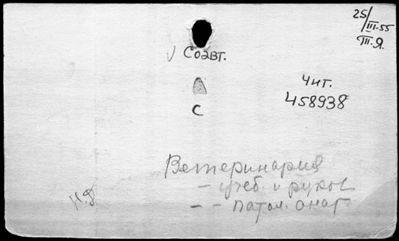 25/III-55
III.Я.
√ Соавт.
Чит.
С
458938
Ветеринария
- учеб. и руков
- - патол. анат
НЯ